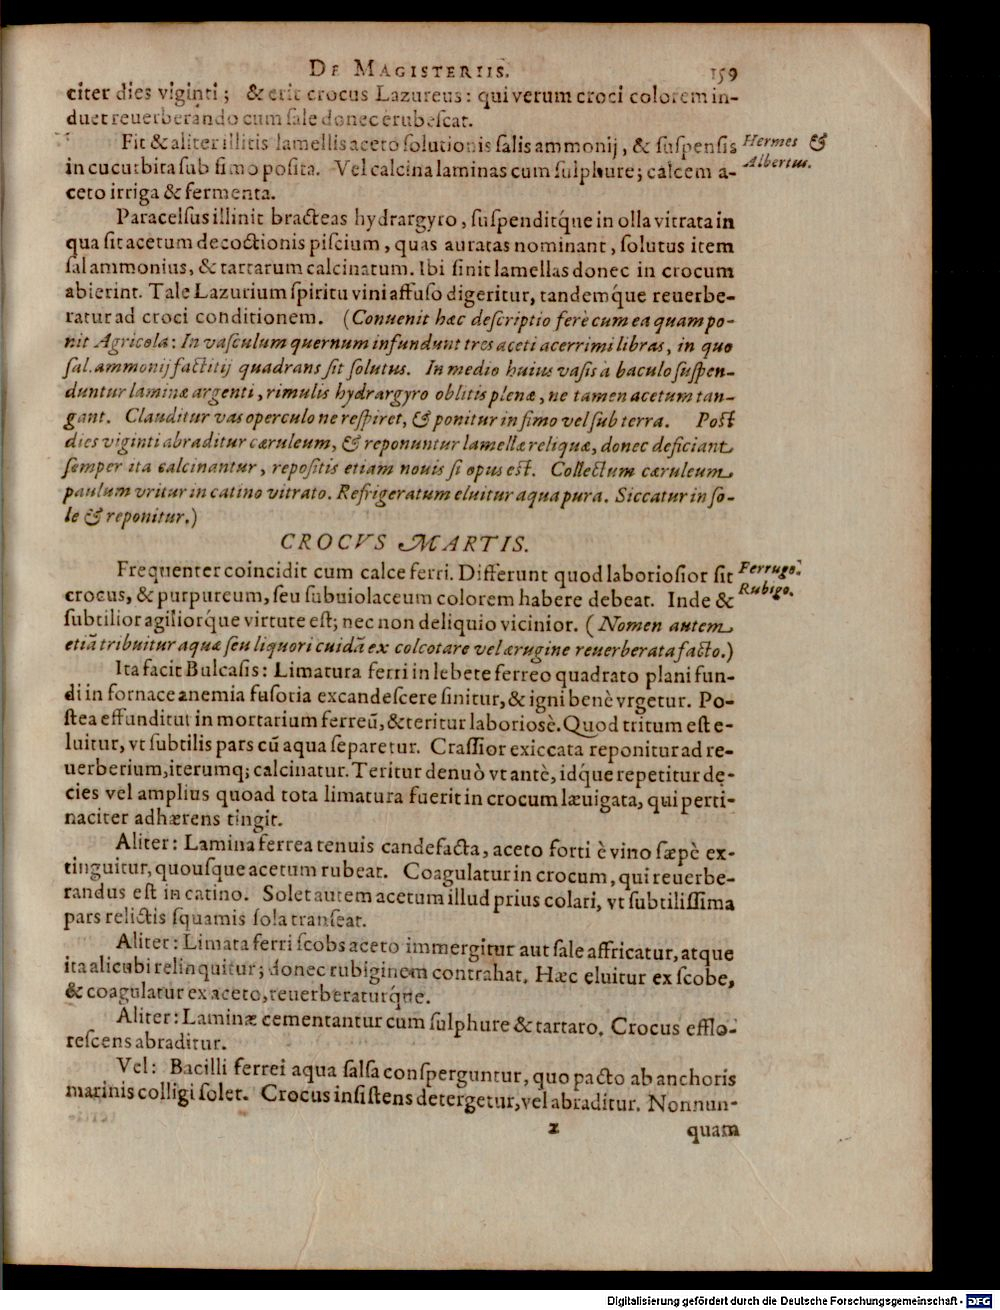 DE MAGISTERIIS. 159
citer dies viginti; & erit crocus Lazureus: qui verum croci colorem in-
duet reuerberando cum sale donec erubescat.
Fit & aliter illitis lamellis aceto solutionis salis ammonij, & suspensis
Hermes &
Albertus.
in cucurbita sub fimo posita. Vel calcina laminas cum sulphure; calcem a-
ceto irriga & fermenta.
Paracelsus illinit bracteas hydrargyro, suspenditq́ue in olla vitrata in
qua sit acetum decoctionis piscium, quas auratas nominant, solutus item
sal ammonius, & tartarum calcinatum. Ibi sinit lamellas donec in crocum
abierint. Tale Lazurium spiritu vini affuso digeritur, tandemq́ue reuerbe-
ratur ad croci conditionem. (Conuenit hæc descriptio ferè cum ea quam po-
nit Agricola: In vasculum quernum infundunt tres aceti acerrimi libras, in quo
sal. ammonij factitij quadrans sit solutus. In medio huius vasis a baculo suspen-
duntur laminæ argenti, rimulis hydrargyro oblitis plenæ, ne tamen acetum tan-
gant. Clauditur vas operculo ne respiret, & ponitur in fimo vel sub terra. Post
dies viginti abraditur cæruleum, & reponuntur lamellæ reliquæ, donec deficiant
semper ita calcinantur, repositis etiam nouis si opus est. Collectum cæruleum
paulum vritur in catino vitrato. Refrigeratum eluitur aqua pura. Siccatur in so-
le & reponitur.)
CROCVS MARTIS.
Frequenter coincidit cum calce ferri. Differunt quod laboriosior sit
Ferrugo.
Rubigo.
crocus, & purpureum, seu subuiolaceum colorem habere debeat. Inde &
subtilior agiliorq́ue virtute est; nec non deliquio vicinior. (Nomen autem
etiã tribuitur aquæ seu liquori cuidã ex colcotare vel ærugine reuerberata facto.)
Ita facit Bulcasis: Limatura ferri in lebete ferreo quadrato plani fun-
di in fornace anemia fusoria excandescere sinitur, & igni benè vrgetur. Po-
stea effunditur in mortarium ferreũ, & teritur laboriosè. Quod tritum est e-
luitur, vt subtilis pars cũ aqua separetur. Crassior exiccata reponitur ad re-
uerberium, iterumq; calcinatur. Teritur denuò vt antè, idq́ue repetitur de-
cies vel amplius quoad tota limatura fuerit in crocum læuigata, qui perti-
naciter adhærens tingit.
Aliter: Lamina ferrea tenuis candefacta, aceto forti è vino sæpè ex-
tinguitur, quousque acetum rubeat. Coagulatur in crocum, qui reuerbe-
randus est in catino. Solet autem acetum illud prius colari, vt subtilissima
pars relictis squamis sola transeat.
Aliter: Limata ferri scobs aceto immergitur aut sale affricatur, atque
ita alicubi relinquitur; donec rubiginem contrahat. Hæc eluitur ex scobe,
& coagulatur ex aceto, reuerberaturq́ue.
Aliter: Laminæ cementantur cum sulphure & tartaro. Crocus efflo-
rescens abraditur.
Vel: Bacilli ferrei aqua salsa consperguntur, quo pacto ab anchoris
marinis colligi solet. Crocus insistens detergetur, vel abraditur. Nonnun-
z quam
Digitalisierung gefördert durch die Deutsche Forschungsgemeinschaft - DFG